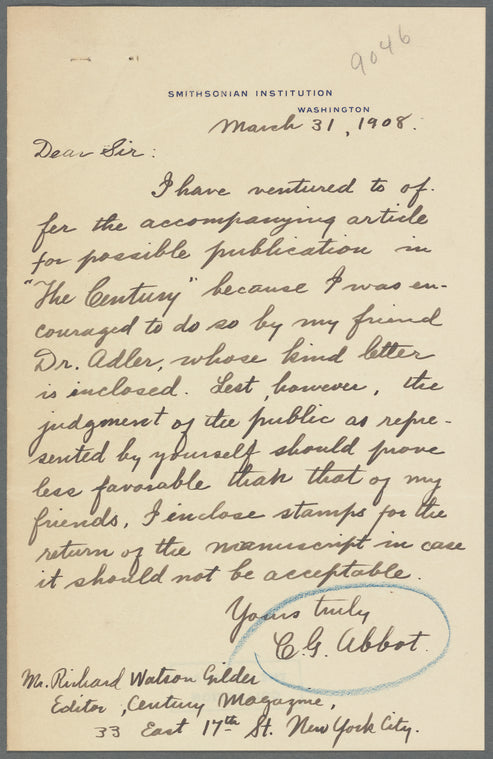 9046
SMITHSONIAN INSTITUTION
WASHINGTON
March 31, 1908.
Dear Sir:
I have ventured to of-
fer the accompanying article
for possible publication in
"The Century" because I was en-
couraged to do so by my friend
Dr. Adler, whose kind letter
is inclosed. Lest, however, the
judgment of the public as repre-
sented by yourself should prove
less favorable than that of my
friends, I inclose stamps for the
return of the manuscript in case
it should not be acceptable.
Yours truly
C. G. Abbot.
Mr. Richard Watson Gilder
Editor, Century Magazine,
33 East 17th St. New York City.